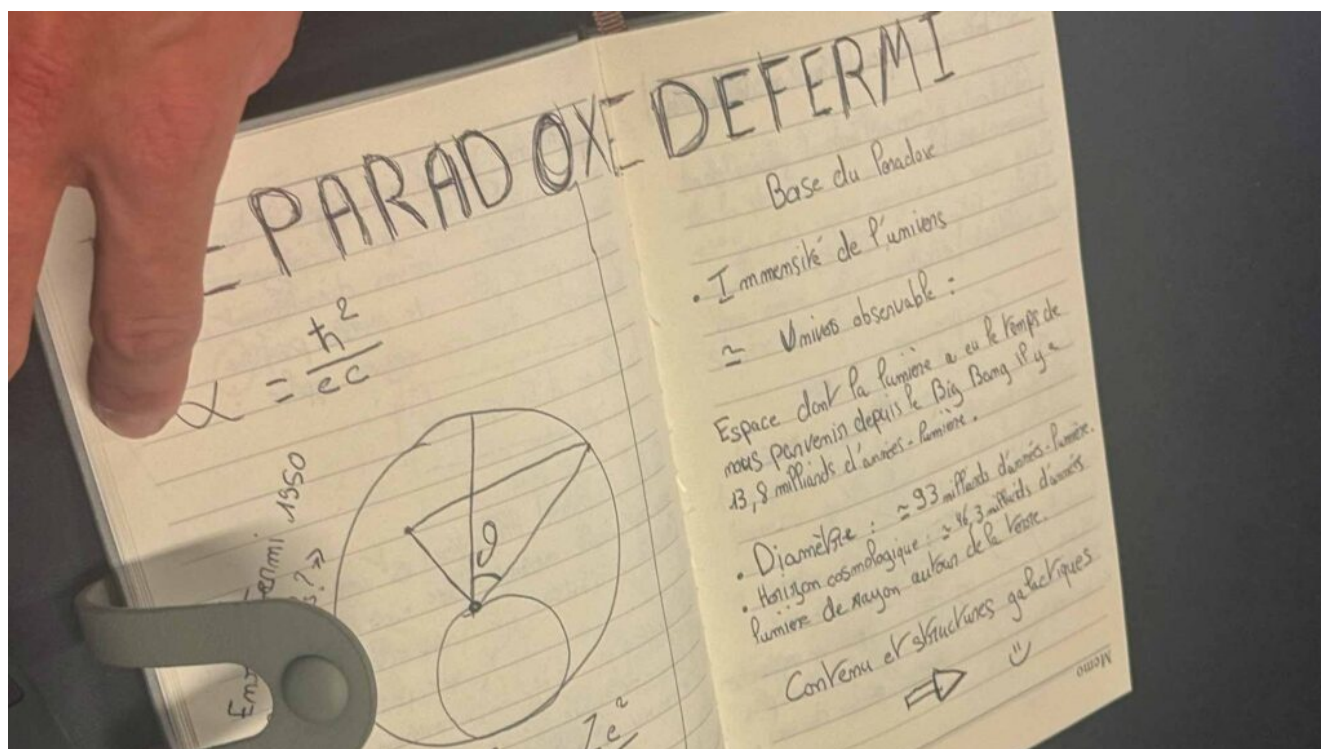 E PARADOXE DE FERMI
α = ħ²
ec
Fermi 1950
s? »
Ze²
Base du Paradoxe
• Immensité de l'univers
≃ Univers observable :
Espace dont la lumière a eu le temps de
nous parvenir depuis le Big Bang il y a
13,8 milliards d'années-lumière.
• Diamètre : ≃ 93 milliards d'années-lumière.
• Horizon cosmologique : ≃ 46,3 milliards d'années
lumière de rayon autour de la terre.
Contenu et structures galactiques
Memo